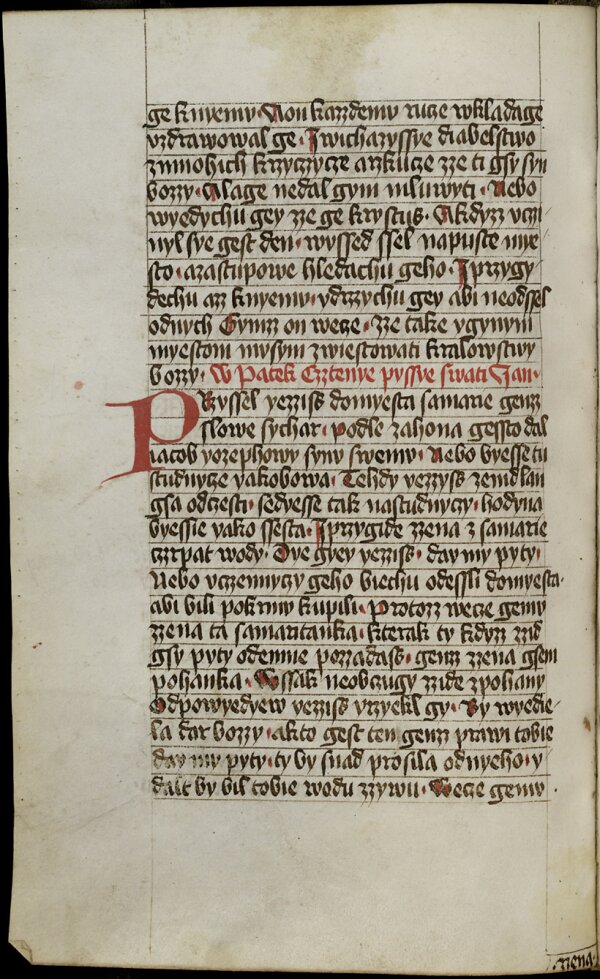 ge knyemv. Aon kazzdemv rucze wkladage
vzdrawowal ge. Jwichazyssye diabelstwo
zmnohich krzyczycze arzkucze zze ti gsy syn
bozzy. Alage nedal gym mluwyti. Nebo
wyedychu gey zze ge krystus. Akdyzz vczi-
nyl sye gest den. wyssed ssel napuste mye-
sto. azastupowe hledachu geho. Jprzygi-
dechu az knyemv. ydrzychu gey abi neodssel
odnych Gymzz on wecze. zze take ygynym
myestom mvsym zwiestowati kralowstwy
bozzy. W Patek Cztenye pyssye swati Jan.
PRzyssel yezziss domyesta samarie genz
slowe sychar. podle zahona gessto dal
iacob yozephowy synv swemv. Nebo byesse tu
studnycze yakobowa. Tehdy yezzyss zemdlan
gsa odczesti. sedyesse tak nastudnyczy. hodyna
byessie yako ssesta. Jprzygide zzena z samarie
czrpat wody. Dye gyey yezziss. day my pyty.
Nebo vczennyczy geho biechu odessli domyesta.
abi bili pokrmv kupili. Protozz wecze gemv
zzena ta samaritanka. kterak ty kdyzz zzid
gsy pyty odemne pozzadass. genz zzena gsem
pohanka. Wssak neobczugy zzide zpohany
Odpowyedyew yezziss vrzyekl gy. By wyedie-
la dar bozzy. akto gest ten genz prawi tobie
day my pyty. ty by snad prosila odnyeho. y
dalt by bil tobie wodu zzywu. Wecze gemv
zzena.